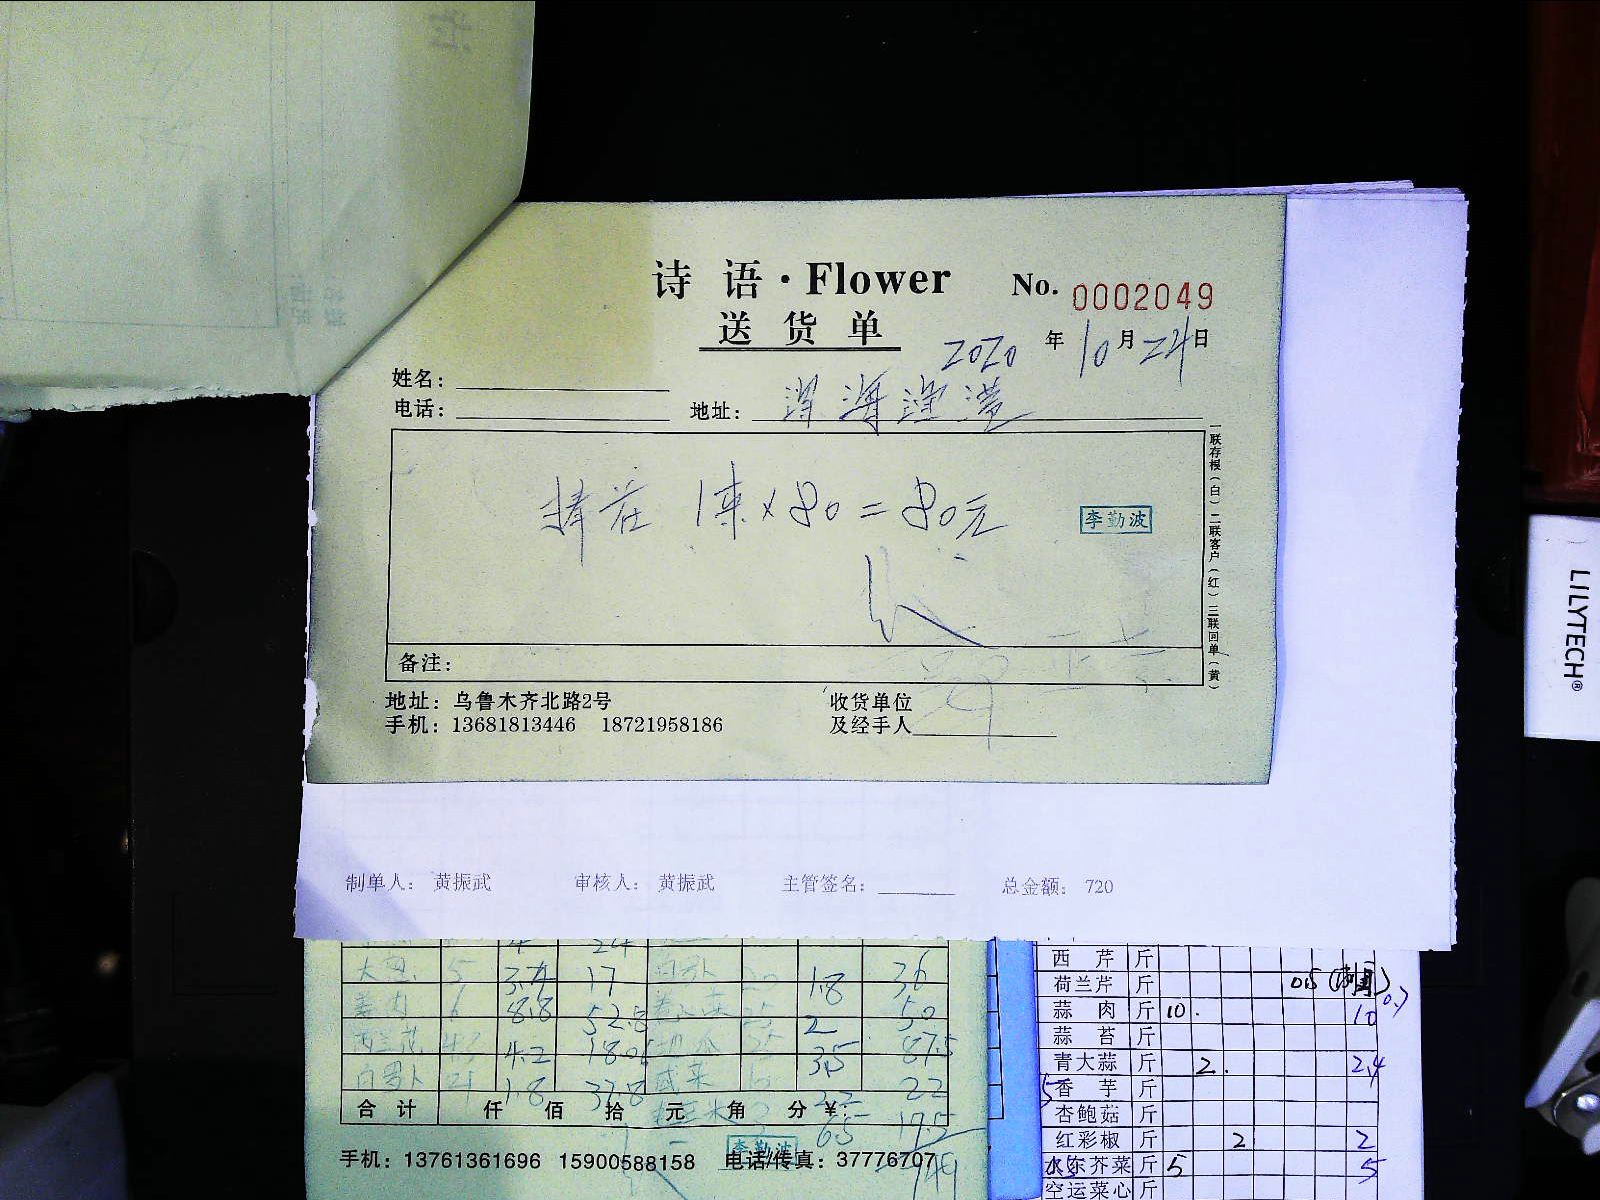 诗语·Flower No. 0002049
送货单
2020年10月24日
姓名:
电话: 地址:
捧花 1束×80=80元
李勤波
一联存根(白)二联客户(红)三联回单(黄)
备注:
地址: 乌鲁木齐北路2号 收货单位
手机: 13681813446 18721958186 及经手人
制单人: 黄振武 审核人: 黄振武 主管签名: 总金额: 720
17 白萝卜 1.8 36
姜肉 6 8.8 52.8 2 50
4.2 3.5 87.5
白萝卜 21 1.8 37.8 咸菜 22
合计 仟 佰 拾 元 角 分 ¥:
6.5 19.5
李勤波
手机: 13761361696 15900588158 电话/传真: 37776707
西芹 斤
荷兰芹 斤 0.5
蒜肉 斤 10. 10
蒜苔 斤
青大蒜 斤 2. 2.4
香芋 斤
杏鲍菇 斤
红彩椒 斤 2 2
水东芥菜 斤 5 5
空运菜心 斤
LILYTECH®